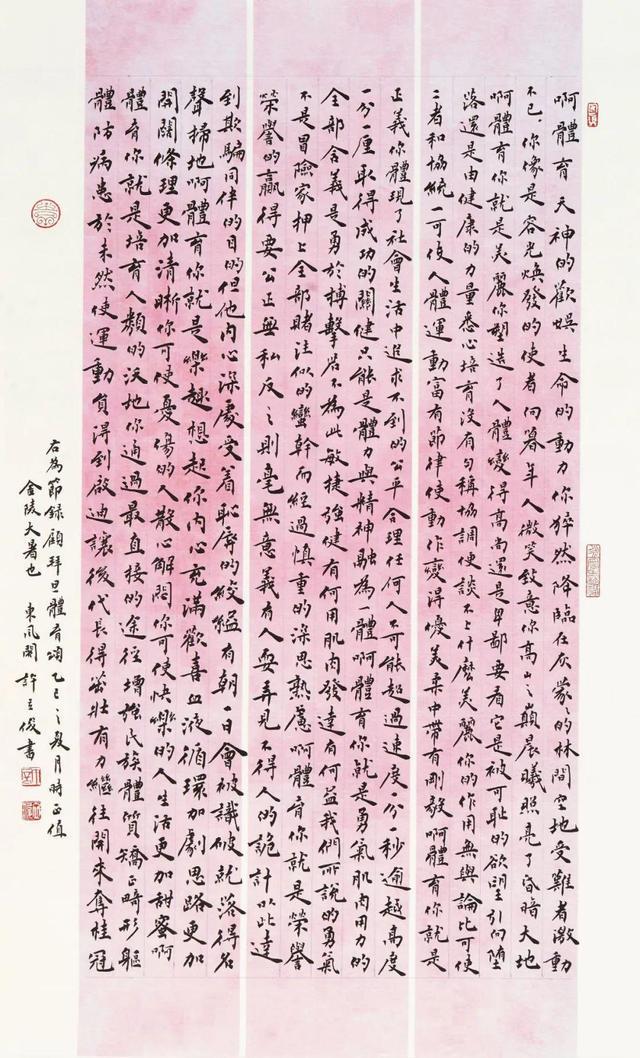 啊體育天神的歡娛生命的動力你猝然降臨在灰蒙々的林間空地受難者激動
不已你像是容光煥發的使者向暮年人微笑致意你高山之巔晨曦照亮了昏暗大地
啊體育你就是美麗你塑造了人體變得高尚還是卑鄙要看它是被可恥的欲望引向墮
落還是由健康的力量悉心培育沒有勻稱協調便談不上什麼美麗你的作用無與論比可使
二者和協統一可使人體運動富有節律使動作變得優美柔中帶有剛毅啊體育你就是
正義你體現了社會生活中追求不到的公平合理任何人不可能超過速度一分一秒逾越高度
一分一厘取得成功的關健只能是體力與精神融為一體啊體育你就是勇氣肌肉用力的
全部含義是勇於搏擊若不為此敏捷強健有何用肌肉發達有何益我們所說的勇氣
不是冒險家押上全部賭注似的蠻幹而經過慎重的深思熟慮啊體育你就是榮譽
榮譽的贏得要公正無私反之則毫無意義有人耍弄見不得人的詭計以此達
到欺騙同伴的目的但他內心深處受着恥辱的絞縊有朝一日會被識破就落得名
聲掃地啊體育你就是樂趣想起你內心充滿歡喜血液循環加劇思路更加
開闊條理更加清晰你可使憂傷的人散心解悶你可使快樂的人生活更加甜蜜啊
體育你就是培育人類的沃地你通過最直接的途徑增強民族體質矯正畸形軀
體防病患於未然使運動員得到啟迪讓後代長得茁壯有力繼往開來奪桂冠
右為節録顧拜旦體育頌乙巳之夏月時正值
金陵大暑也 東風閣 許立俊書